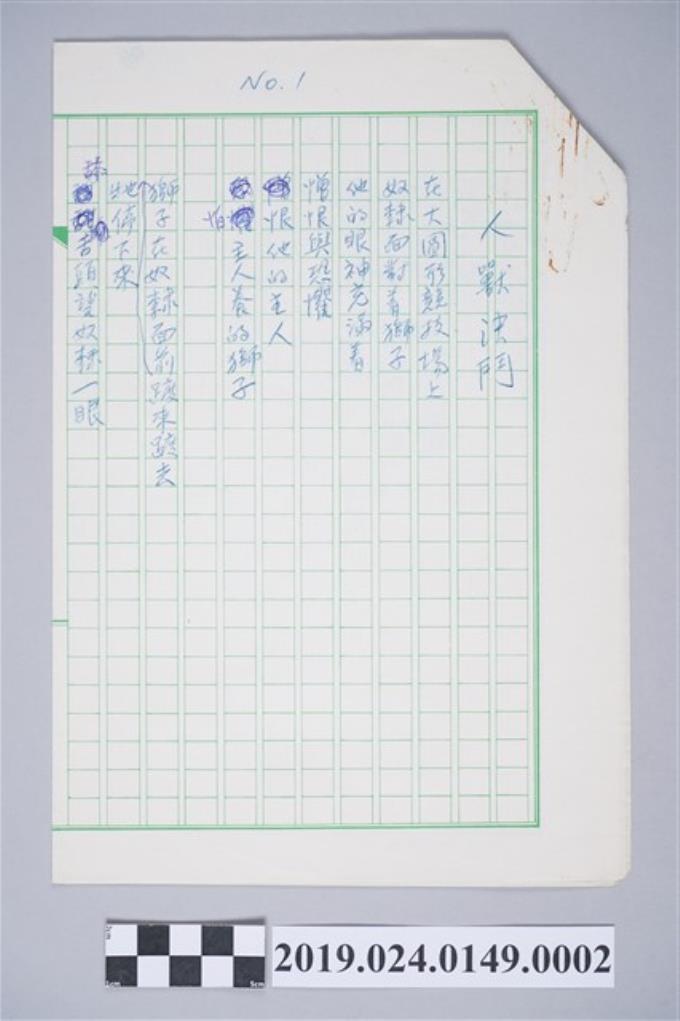 No. 1
人獸決鬥
在大圓形競技場上
奴隸面對着獅子
他的眼神充滿着
憎恨與恐懼
恨他的主人
怕主人養的獅子
獅子在奴隸面前踱來踱去
牠停下來
舔舌頭望奴隸一眼
2019.024.0149.0002